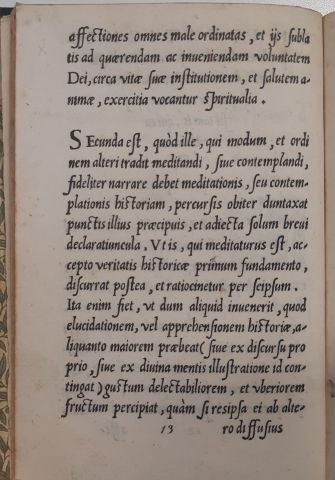 affectiones omnes male ordinatas, et ijs subla
tis ad quærendam ac inueniendam voluntatem
Dei, circa vitæ suæ institutionem, et salutem a-
nimæ, exercitia vocantur spiritualia.
SEcunda est, quòd ille, qui modum, et ordi
nem alteri tradit meditandi, siue contemplandi,
fideliter narrare debet meditationis, seu contem-
plationis historiam, percursis obiter duntaxat
punctis illius præcipuis, et adiecta solum breui
declaratiuncula. Vt is, qui meditaturus est, ac,
cepto veritatis historicæ primum fundamento,
discurrat postea, et ratiocinetur per seipsum.
Ita enim fiet, vt dum aliquid inuenerit, quod
elucidationem, vel apprehensionem historiæ, a-
liquanto maiorem præbeat (siue ex discursu pro
prio, siue ex diuina mentis illustratione id con-
tingat) gustum delectabiliorem, et vberiorem
fructum percipiat, quàm si res ipsa ei ab alte-
13 ro diffusius